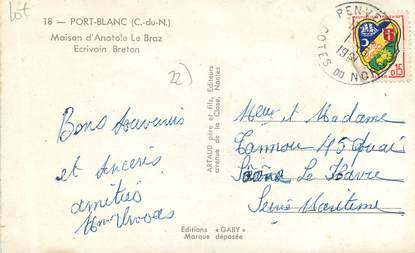 Lot
18 — PORT-BLANC (C.-du-N.)
Maison d'Anatole Le Braz
Ecrivain Breton
22)
PENVE
COTES DU NORD
0,15
Bons Souvenirs
et Sincères
amitiés
ARTAUD père et fils, Editeurs
avenue de la Close, Nantes
Meur et Madame
Tannou 45 Quai
Le Havre
Seine Maritime
Editions « GABY »
Marque déposée